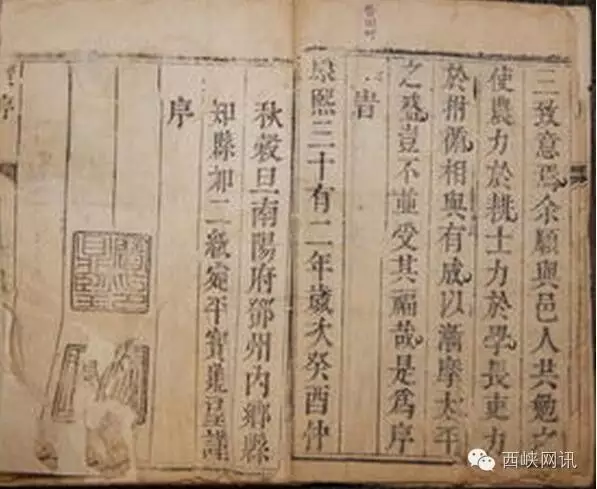 三致意焉余願與邑人共勉之
使農力於耕士力於學長吏力
於拊循相與有成以漸摩太平
之盛豈不並受其福哉是爲序
旹
康熙三十有二年歲次癸酉仲
秋穀旦南陽府鄧州內鄉縣
知縣加二級宛平寶鼎望謹
序
序
西峡网讯